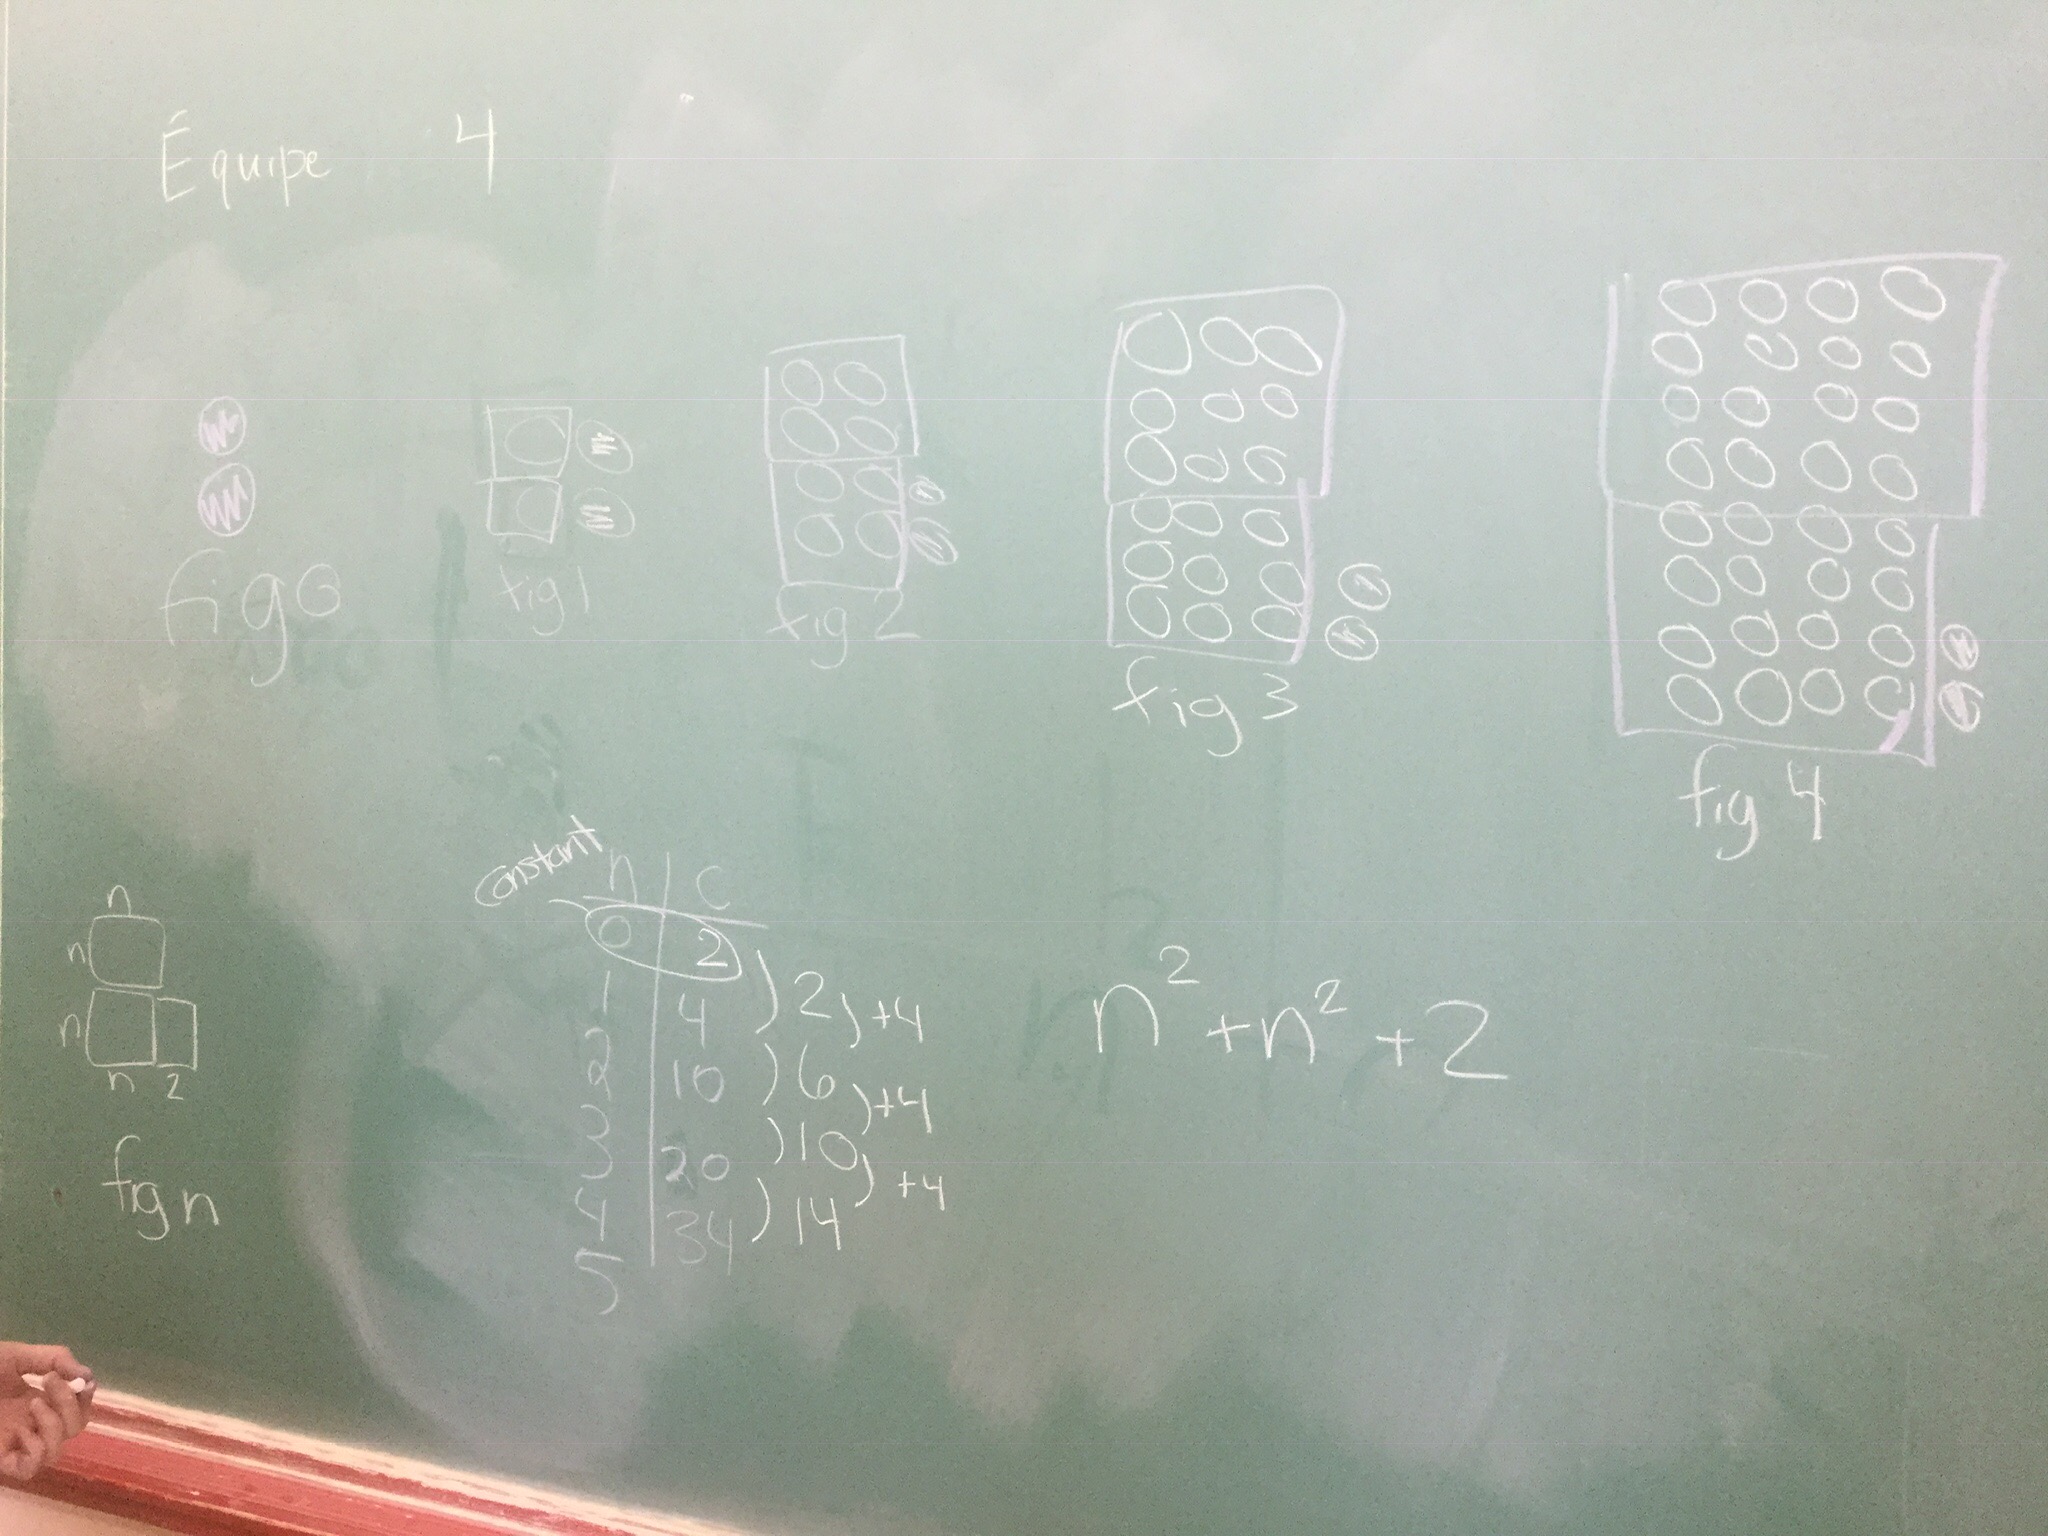 Équipe 4
fig 0
fig 1
fig 2
fig 3
fig 4
constant
n | C
0 | 2
1 | 4 ) 2 ) +4
2 | 10 ) 6 ) +4
3 | 20 ) 10 ) +4
4 | 34 ) 14
5
n² + n² + 2
n
n
n
n 2
fig n